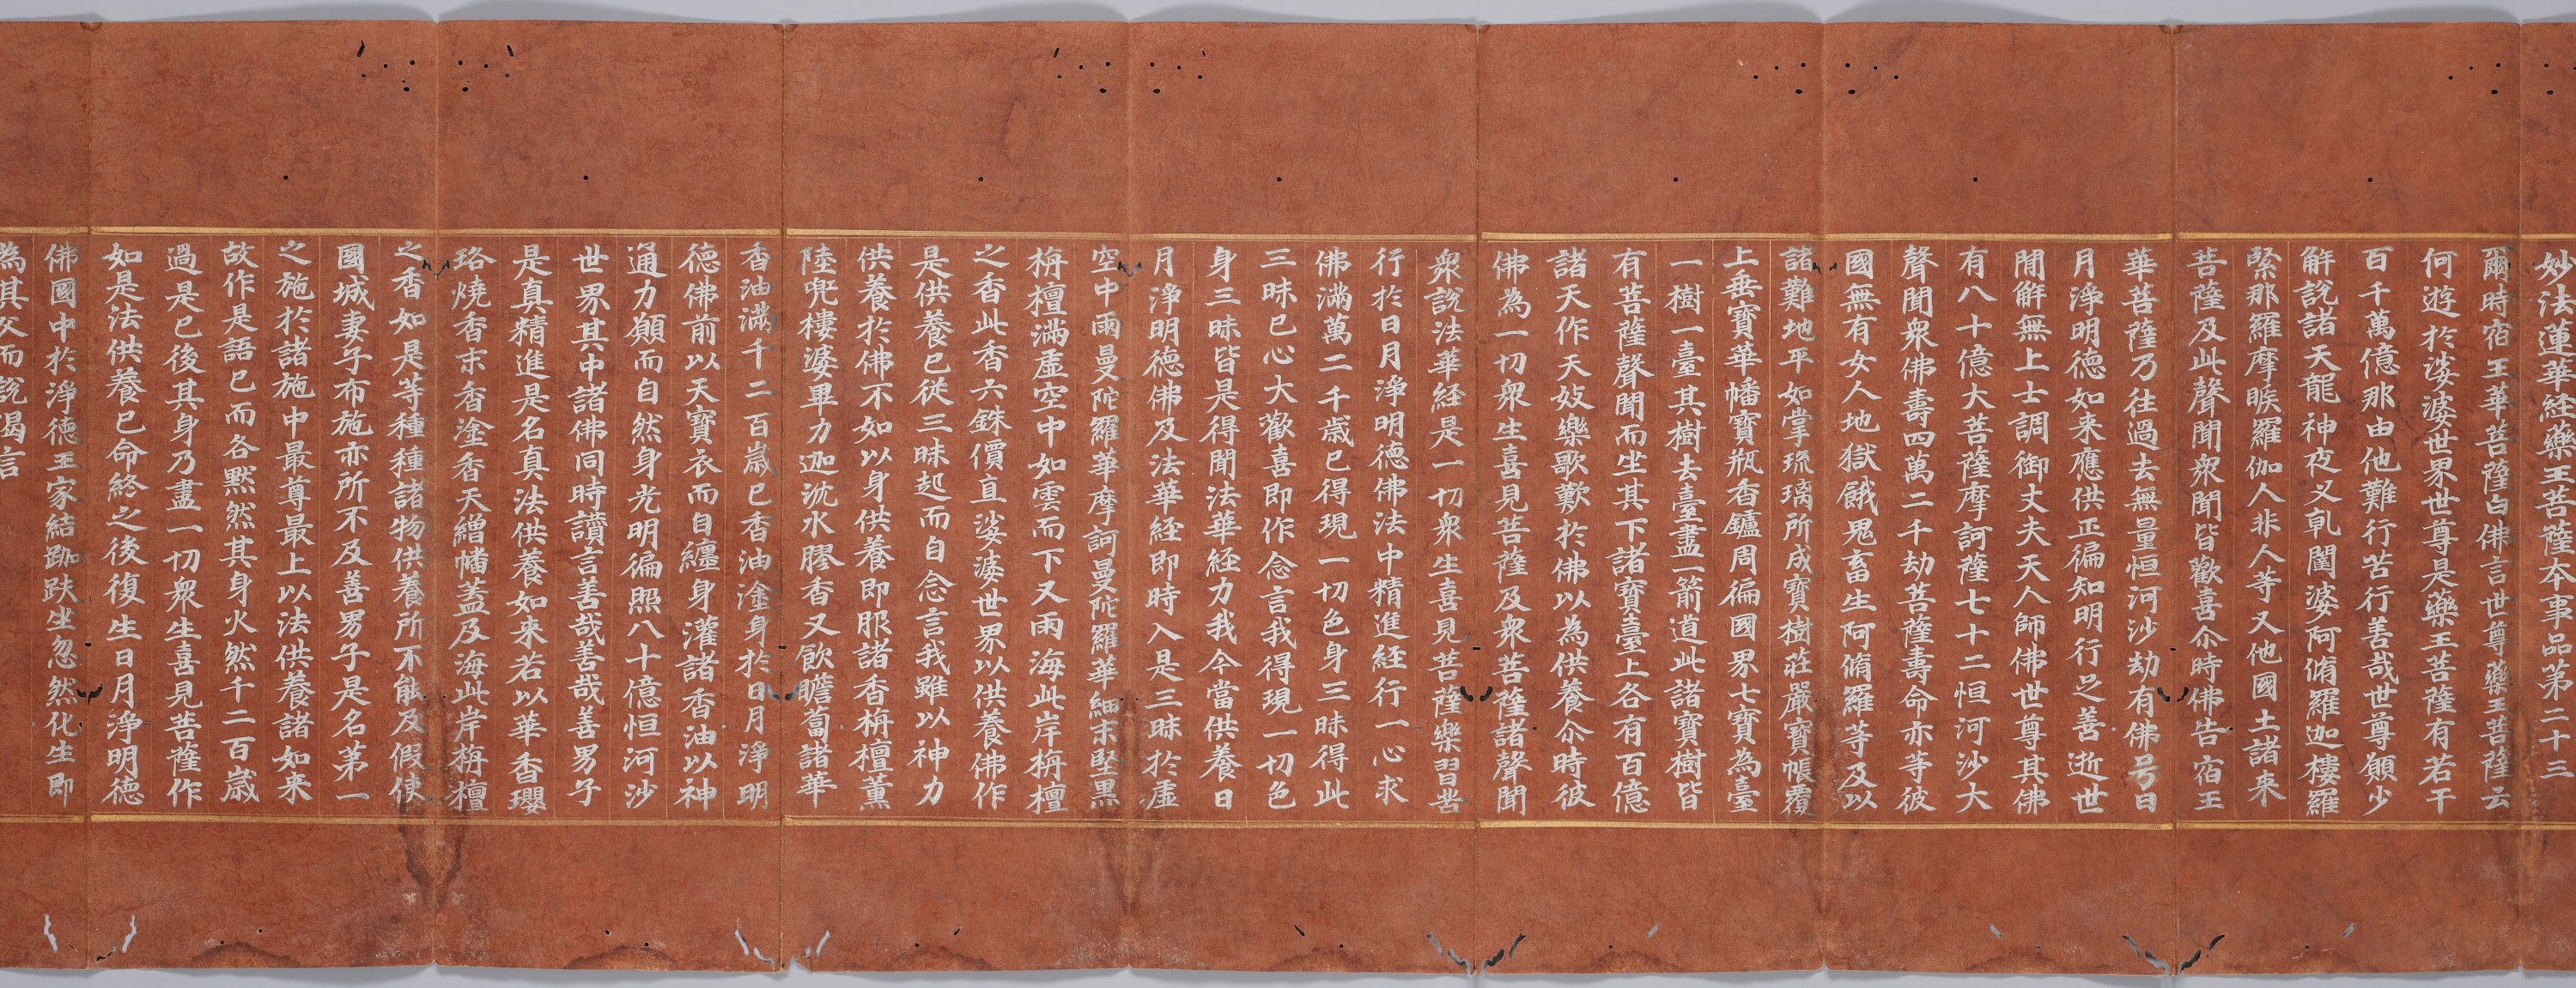 妙法蓮華経藥王菩薩本事品第二十三
爾時宿王華菩薩白佛言世尊藥王菩薩云
何遊於娑婆世界世尊是藥王菩薩有若干
百千萬億那由他難行苦行善哉世尊願少
解說諸天龍神夜叉乹闥婆阿脩羅迦樓羅
緊那羅摩睺羅伽人非人等又他國土諸来
菩薩及此聲聞衆聞皆歡喜尒時佛告宿王
華菩薩乃往過去無量恒河沙劫有佛号日
月淨明德如来應供正徧知明行足善逝世
間解無上士調御丈夫天人師佛世尊其佛
有八十億大菩薩摩訶薩七十二恒河沙大
聲聞衆佛壽四萬二千劫菩薩壽命亦等彼
國無有女人地獄餓鬼畜生阿脩羅等及以
諸難地平如掌琉璃所成寶樹莊嚴寶帳覆
上垂寶華幡寶瓶香鑪周徧國界七寶為臺
一樹一臺其樹去臺盡一箭道此諸寶樹皆
有菩薩聲聞而坐其下諸寶臺上各有百億
諸天作天妓樂歌歎於佛以為供養尒時彼
佛為一切衆生喜見菩薩及衆菩薩諸聲聞
衆說法華経是一切衆生喜見菩薩樂習苦
行於日月淨明德佛法中精進経行一心求
佛滿萬二千歲已得現一切色身三昧得此
三昧已心大歡喜即作念言我得現一切色
身三昧皆是得聞法華経力我今當供養日
月淨明德佛及法華経即時入是三昧於虛
空中雨曼陀羅華摩訶曼陀羅華細末堅黒
栴檀滿虛空中如雲而下又雨海此岸栴檀
之香此香六銖價直娑婆世界以供養佛作
是供養已從三昧起而自念言我雖以神力
供養於佛不如以身供養即服諸香栴檀薰
陸兜樓婆畢力迦沉水膠香又飲瞻蔔諸華
香油滿千二百歲已香油塗身於日月淨明
德佛前以天寶衣而自纏身灌諸香油以神
通力願而自然身光明徧照八十億恒河沙
世界其中諸佛同時讃言善哉善哉善男子
是真精進是名真法供養如来若以華香瓔
珞燒香末香塗香天繒幡蓋及海此岸栴檀
之香如是等種種諸物供養所不能及假使
國城妻子布施亦所不及善男子是名第一
之施於諸施中最尊最上以法供養諸如来
故作是語已而各默然其身火然千二百歲
過是已後其身乃盡一切衆生喜見菩薩作
如是法供養已命終之後復生日月淨明德
佛國中於淨德王家結跏趺坐忽然化生即
為其父而說偈言